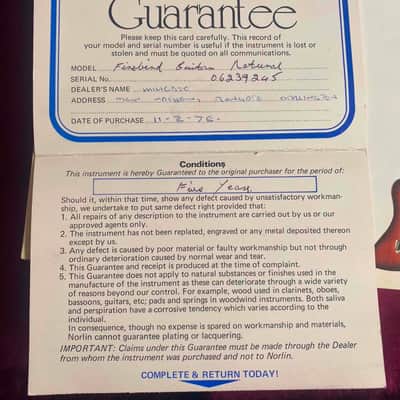 Guarantee
Please keep this card carefully. This record of
your model and serial number is useful if the instrument is lost or
stolen and must be quoted on all communications.
MODEL Firebird Guitar Natural
SERIAL No. 06239245
DEALER'S NAME
ADDRESS
DATE OF PURCHASE 11-2-76.
Conditions
This instrument is hereby Guaranteed to the original purchaser for the period of:
Five Years
Should it, within that time, show any defect caused by unsatisfactory workman-
ship, we undertake to put same defect right provided that:
1. All repairs of any description to the instrument are carried out by us or our
approved agents only.
2. The instrument has not been replated, engraved or any metal deposited thereon
except by us.
3. Any defect is caused by poor material or faulty workmanship but not through
ordinary deterioration caused by normal wear and tear.
4. This Guarantee and receipt is produced at the time of complaint.
5. This Guarantee does not apply to natural substances or finishes used in the
manufacture of the instrument as these can deteriorate through a wide variety
of reasons beyond our control. For example, wood used in clarinets, oboes,
bassoons, guitars, etc; pads and springs in woodwind instruments. Both saliva
and perspiration have a corrosive tendency which varies according to the
individual.
In consequence, though no expense is spared on workmanship and materials,
Norlin cannot guarantee plating or lacquering.
IMPORTANT: Claims under this Guarantee must be made through the Dealer
from whom the instrument was purchased and not to Norlin.
COMPLETE & RETURN TODAY!